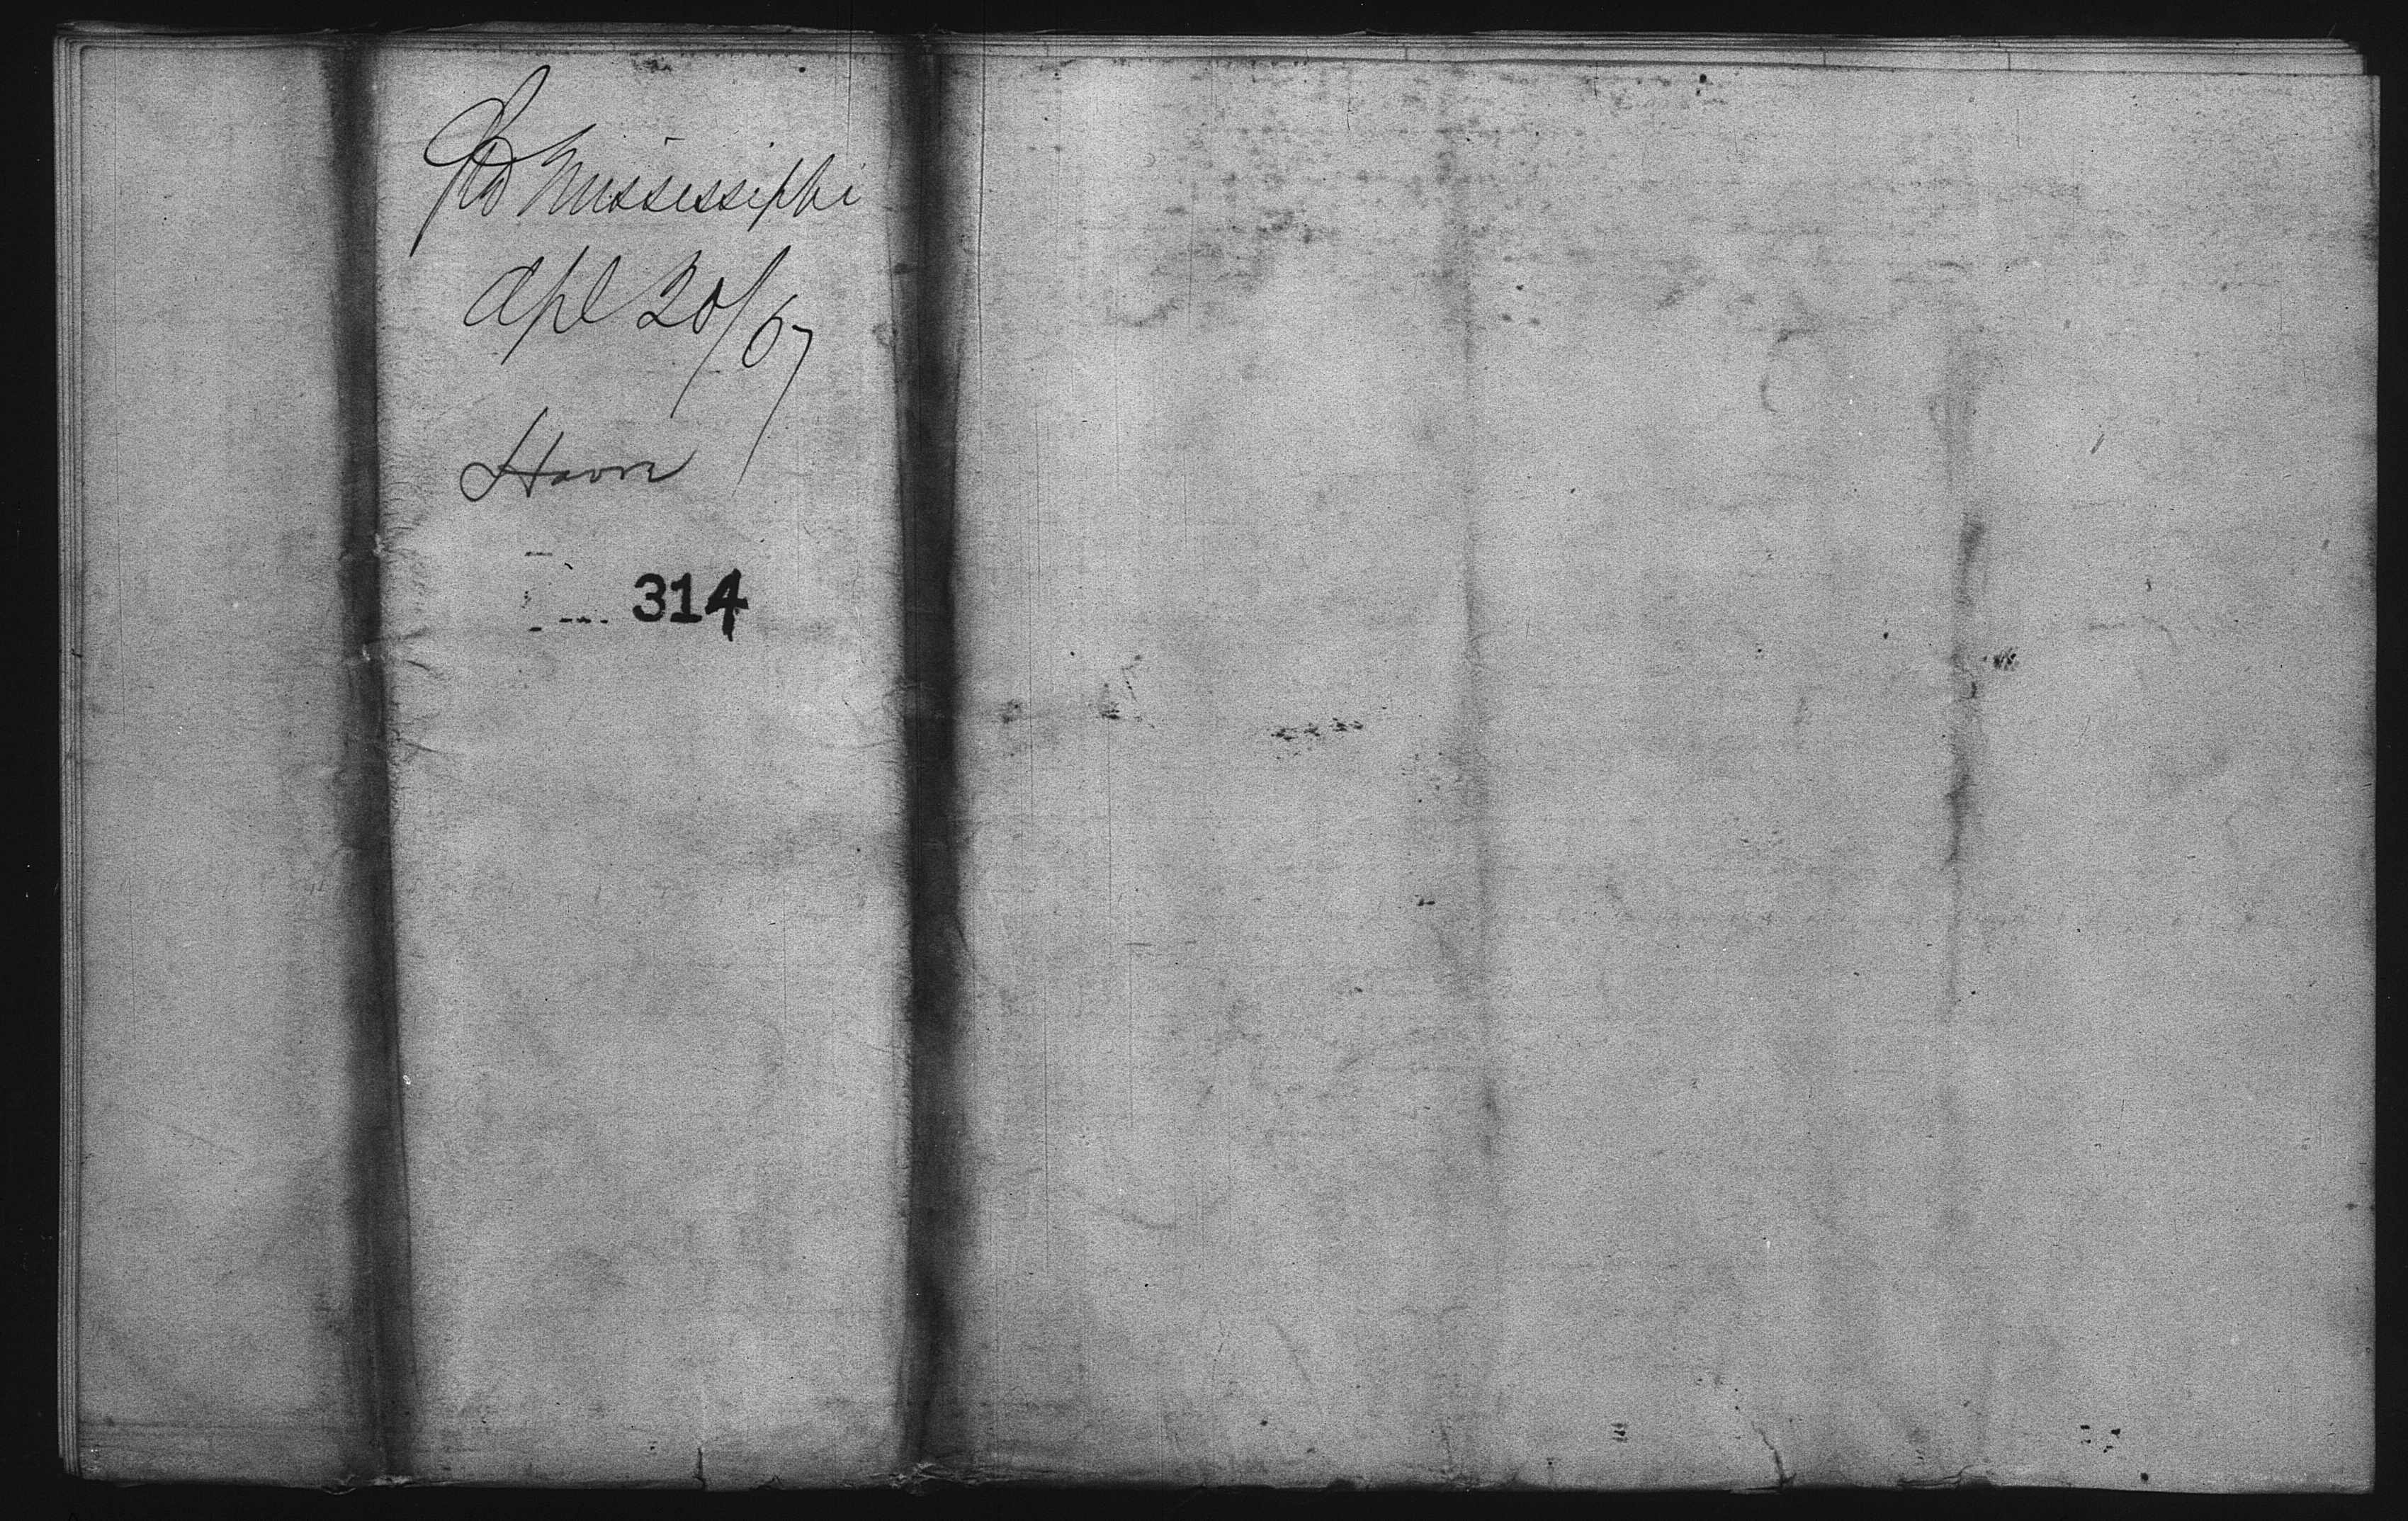 Str Mississippi
Apl 20/67
Havre
314